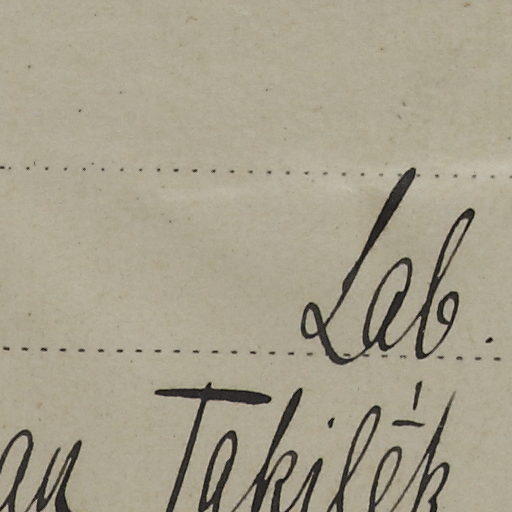 Lab.
an Takilék